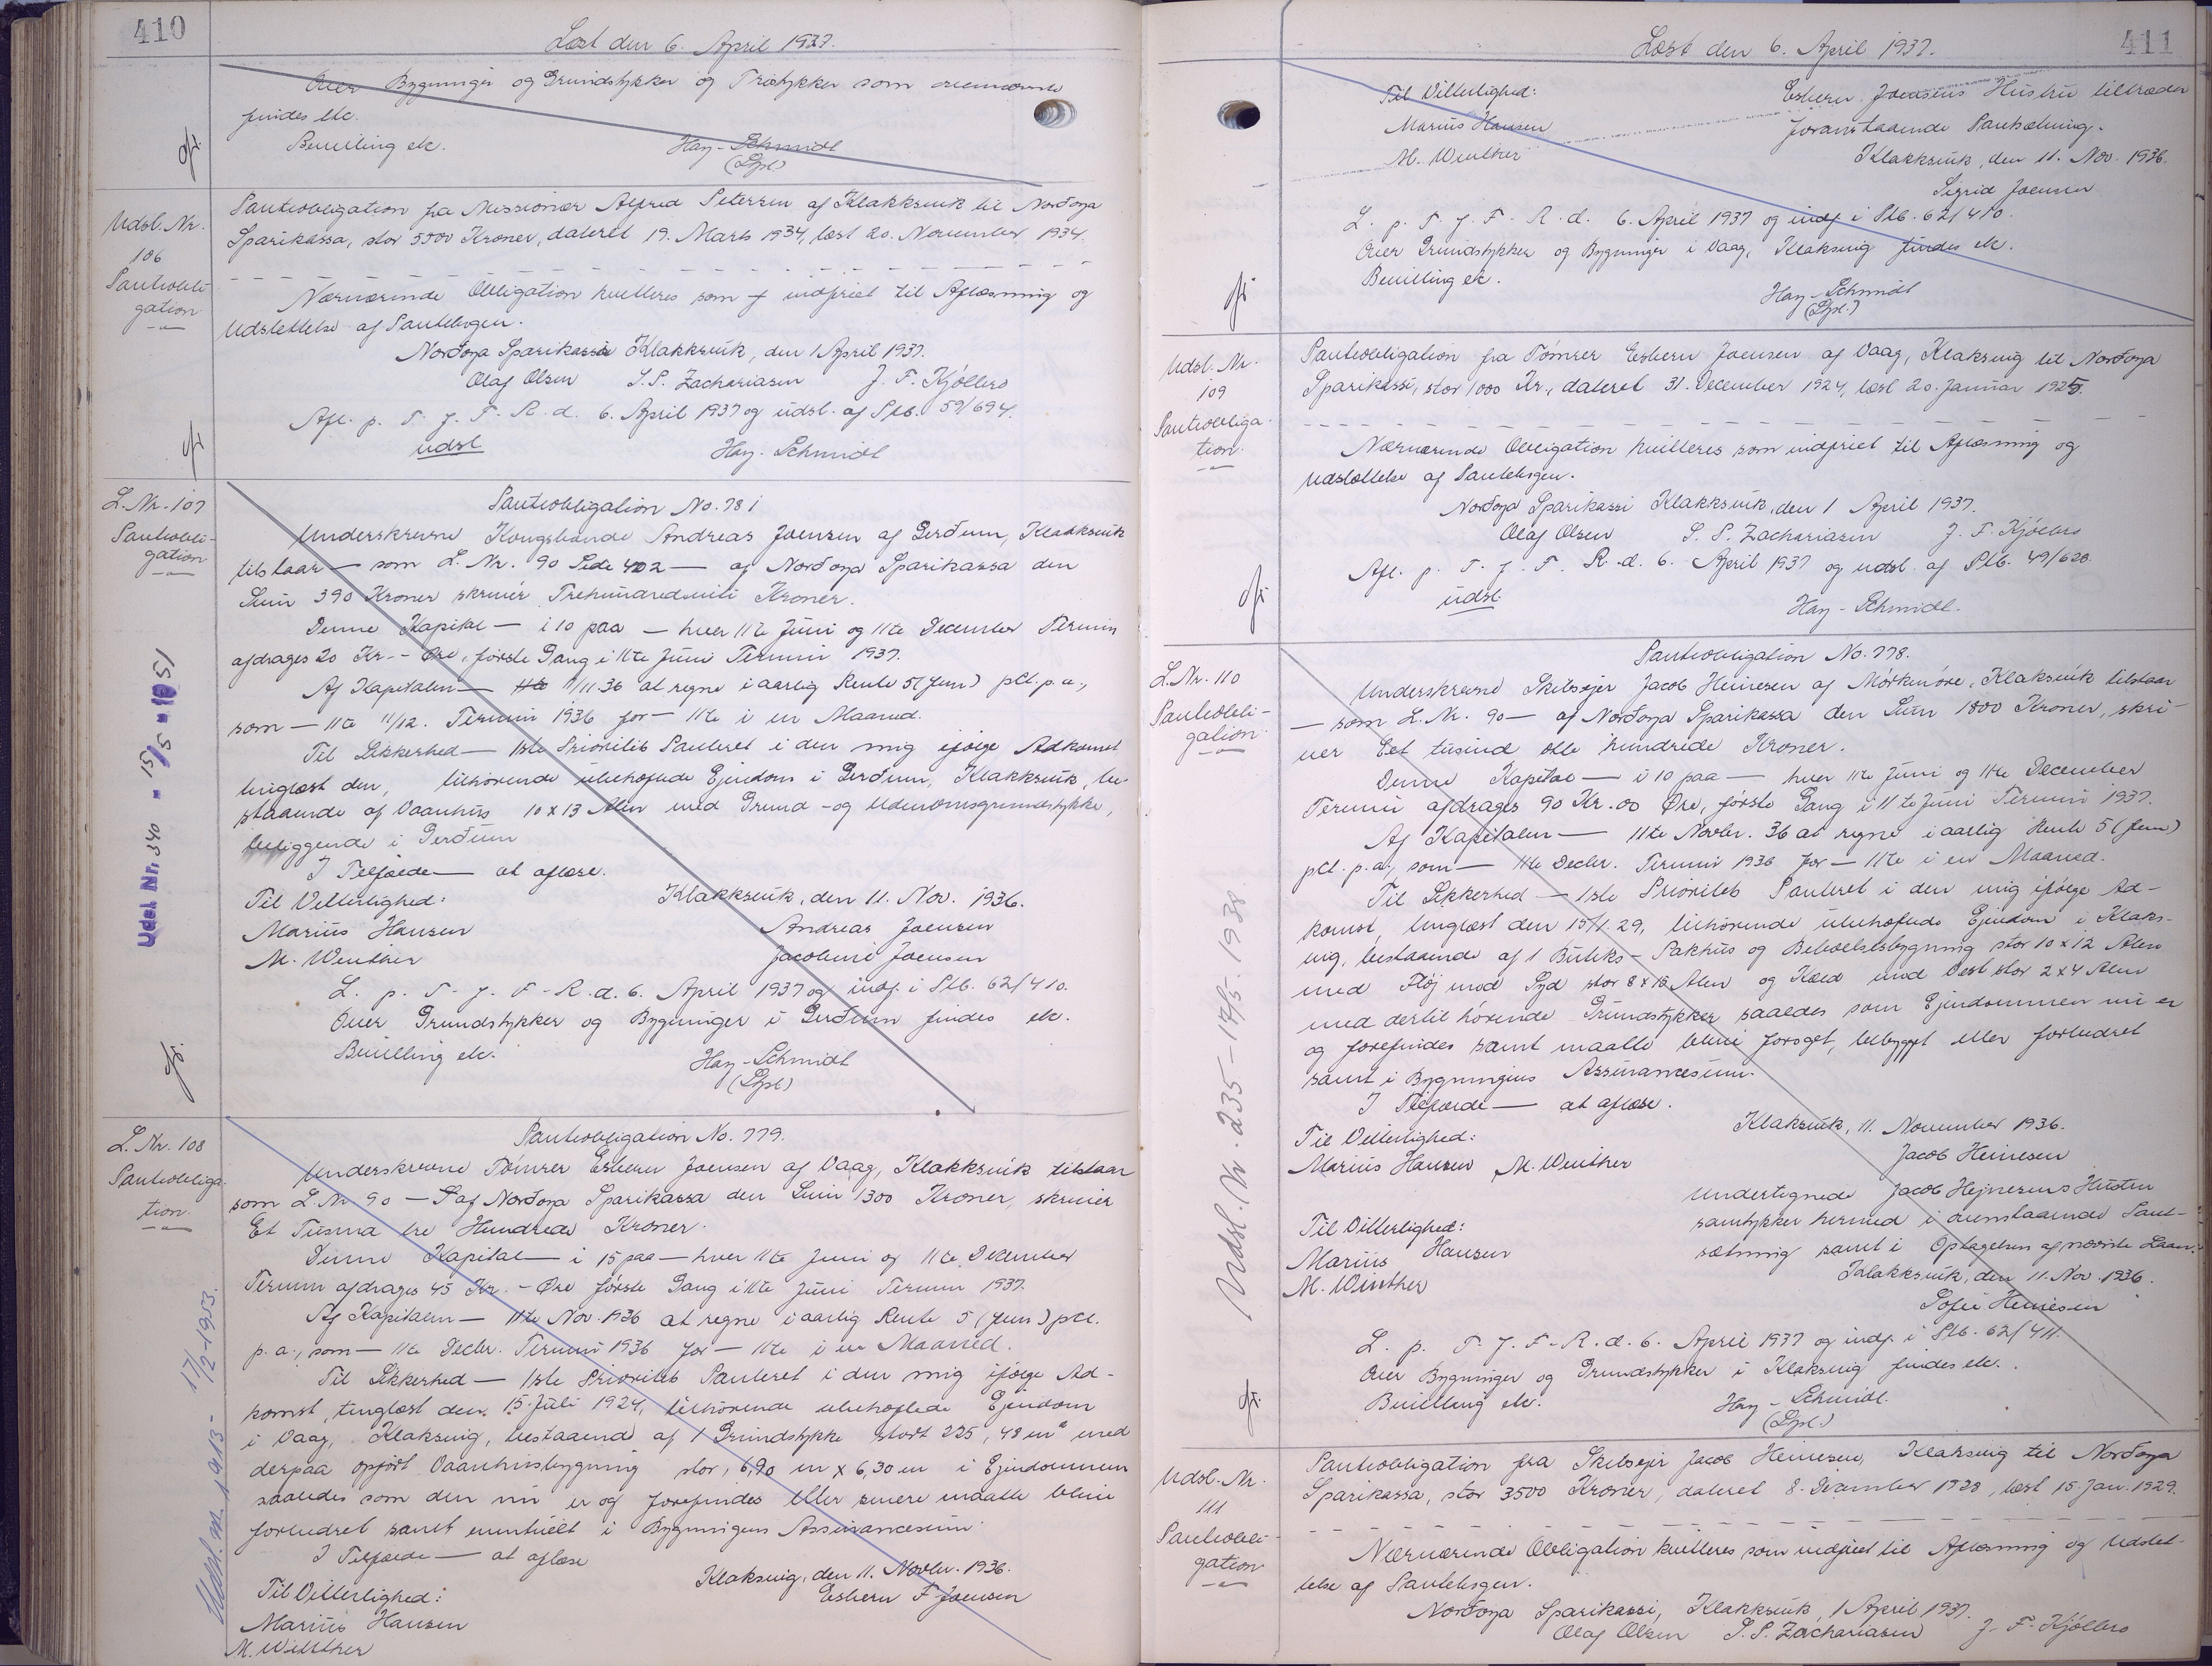 410
Læst den 6. April 1937.
Over Bygninger og Grundstykker og Træstykker som ovennævnte
findes etc.
Bevilling etc. Hay-Schmidt
(Gpl.)
Udsl. Nr.
106
Panteobli-
gation
Panteobligation fra Missionær Alfred Petersen af Klakksvik til Norðoya
Sparikassa, stor 5500 Kroner, dateret 19. Marts 1934, læst 20. November 1934.
Nærværende Obligation kvitteres som indfriet til Aflæsning og
Udslettelse af Pantebogen.
Norðoya Sparikassa Klakksvik, den 1 April 1937.
Olaf Olsen S. P. Zachariasen J. F. Kjölbro
Afl. p. T. f. F. R. d. 6. April 1937 og udsl. af Ptb. 59/694.
udsl Hay-Schmidt
L. Nr. 107
Panteobli-
gation
Udsl. Nr. 340 - 15/5 - 1951
Panteobligation No. 781
Underskrevne Kongsbonde Andreas Joensen af Gerðum, Klakksvik
tilstaar — som L. Nr. 90 Side 402 — af Norðoya Sparikassa den
Sum 390 Kroner skriver Trehundredeniti Kroner.
Denne Kapital — i 10 paa — hver 11te Juni og 11te December Termin
afdrages 20 Kr. - Øre, første Gang i 11te Juni Termin 1937.
Af Kapitalen — 11/11.36 at regne i aarlig Rente 5 (fem) pCt. p. a.,
som — 11te 11/12. Termin 1936 for — 11te i en Maaned.
Til Sikkerhed — 1ste Prioritets Panteret i den mig ifølge Adkomst
tinglæst den, tilhørende ubehæftede Ejendom i Gerðum, Klakksvik, be-
staaende af Vaanhus 10 x 13 Alen med Grund- og Udenomsgrundstykke,
beliggende i Gerðum
I Tilfælde — at aflæse.
Til Vitterlighed: Klakksvik, den 11. Nov. 1936.
Marius Hansen Andreas Joensen
M. Winther Jacobine Joensen
L. p. T. f. F. R. d. 6. April 1937 og indf. i Ptb. 62/410.
Over Grundstykker og Bygninger i Gerðum findes etc.
Bevilling etc. Hay-Schmidt
(Gpl.)
L. Nr. 108
Panteobliga-
tion
Udsl. nr. 1913 - 17/2-1953.
Panteobligation No. 779.
Underskrevne Tömrer Esbern Joensen af Vaag, Klakksvik tilstaar
som L Nr 90 — af Norðoya Sparikassa den Sum 1300 Kroner, skriver
Et Tusind tre Hundrede Kroner.
Denne Kapital — i 15 paa — hver 11te Juni og 11te December
Termin afdrages 45 Kr. - Øre første Gang i 11te Juni Termin 1937.
Af Kapitalen — 11te Nov. 1936 at regne i aarlig Rente 5 (fem) pCt.
p. a., som — 11te Decbr. Termin 1936 for — 11te i en Maaned.
Til Sikkerhed — 1ste Prioritets Panteret i den mig ifølge Ad-
komst, tinglæst den. 15. Juli 1924, tilhørende ubehæftede Ejendom
i Vaag, Klaksvig, bestaaend af 1 Grundstykke stort 225,48 m² med
derpaa opført Vaanhusbygning stor, 6,90 m x 6,30 m i Ejendommen
saaledes som den nu er og forefindes eller senere maatte blive
forbedret samt eventuelt i Bygningens Assurancesum.
I Tilfælde — at aflæse
Klaksvig, den 11. Novbr. 1936.
Til Vitterlighed: Esbern F Joensen
Marius Hansen
M. Winther
411
Læst den 6. April 1937.
Til Vitterlighed: Esbern Joensens Hustru tiltræder
Marius Hansen foranstaaende Pantsætning.
M. Winther Klakksvik, den 11. Nov. 1936.
Sigrid Joensen
L. p. T. f. F. R. d. 6. April 1937 og indf. i Ptb. 62/410.
Over Grundstykker og Bygninger i Vaag, Klaksvig findes etc.
Bevilling etc.
Hay-Schmidt
(Gpl.)
Udsl. Nr.
109
Panteobliga-
tion
Panteobligation fra Tömrer Esbern Joensen af Vaag, Klaksvig til Norðoya
Sparikassi, stor 1000 Kr., dateret 31. December 1924, læst 20. Januar 1925.
Nærværende Obligation kvitteres som indfriet til Aflæsning og
Udslettelse af Pantebogen.
Norðoya Sparikassi Klakksvik, den 1 April 1937.
Olaf Olsen S. P. Zachariasen J. F. Kjölbro
Afl. p. T. f. F. R. d. 6. April 1937 og udsl. af Ptb. 49/620.
udsl. Hay-Schmidt.
L. Nr. 110
Panteobli-
gation
Udsl. Nr. 235 - 17/5. 1938.
Panteobligation No. 778.
Underskrevne Skibsejer Jacob Heinesen af Mörkenöre, Klaksvik tilstaar
— som L. Nr. 90 — af Norðoya Sparikassa den Sum 1800 Kroner, skri-
ver Eet tusind otte hundrede Kroner.
Denne Kapital — i 10 paa — hver 11te Juni og 11te December
Termin afdrages 90 Kr. 00 Øre, første Gang i 11te Juni Termin 1937.
Af Kapitalen — 11te Novbr. 36 at regne i aarlig Rente 5 (fem)
pCt. p. a., som — 11te Decbr. Termin 1936 for — 11te i en Maaned.
Til Sikkerhed — 1ste Prioritets Panteret i den mig ifølge Ad-
komst, tinglæst den 15/1. 29, tilhørende ubehæftede Ejendom i Klaks-
vig, bestaaende af 1 Butiks- Pakhus og Beboelsesbygning stor 10 x 12 Alen
med Fløj mod Syd stor 8 x 10 Alen og Kæld mod Vest stor 2 x 4 Alen
med dertil hörende Grundstykker saaledes som Ejendommen nu er
og forefindes samt maatte blive foröget, bebygget eller forbedret
samt i Bygningens Assurancesum.
I Tilfælde — at aflæse.
Klaksvik, 11. November 1936.
Til Vitterlighed: Jacob Heinesen
Marius Hansen M. Winther
Undertegnede Jacob Hejnesens Hustru
Til Vitterlighed: samtykker hermed i ovenstaaende Pant-
Marius Hansen sætning samt i Optagelsen af nævnte Laan.
M. Winther Klakksvik, den 11. Nov. 1936.
Sofie Heinesen
L. p. T. f. F. R. d. 6. April 1937 og indf. i Ptb. 62/411.
Over Bygninger og Grundstykker i Klaksvig findes etc.
Bevilling etc. Hay-Schmidt.
(Gpl.)
Udsl. Nr.
111
Panteobli-
gation
Panteobligation fra Skibsejer Jacob Heinesen, Klaksvig til Norðoya
Sparikassa, stor 3500 Kroner, dateret 8. December 1928, læst 15. Jan. 1929.
Nærværende Obligation kvitteres som indfriet til Aflæsning og Udslet-
telse af Pantebogen.
Norðoya Sparikassi, Klakksvik, 1 April 1937.
Olaf Olsen S. P. Zachariasen J. F. Kjölbro